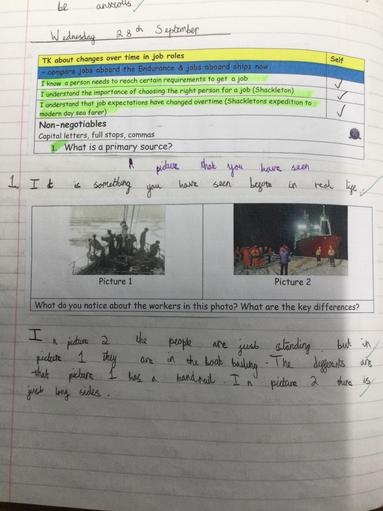 be anscolls
Wednesday 28th September
TK about changes over time in job roles Self
- compare jobs aboard the Endurance & jobs aboard ships now
I know a person needs to reach certain requirements to get a job
I understand the importance of choosing the right person for a job (Shackleton)
I understand that job expectations have changed overtime (Shackletons expedition to
modern day sea farer)
Non-negotiables
Capital letters, full stops, commas
1. What is a primary source?
A picture that you have seen
1 It is something you have seen before in real life
Picture 1 Picture 2
What do you notice about the workers in this photo? What are the key differences?
In picture 2 the people are just standing but in
picture 1 they are in the boat . The are
that picture 1 has a handrail . In picture 2 there is
just long sides .